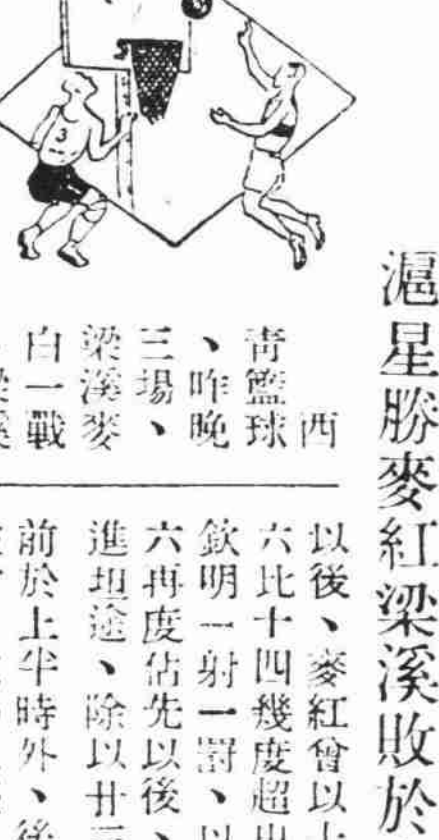 滬星勝麥紅梁溪敗於
西
青籃球
、昨晚
三場、
梁溪麥
白一戰
以後、麥紅曾以十
六比十四幾度超出
欽明一射一罰、以
六再度佔先以後、
進坦途、除以廿三
前於上半時外、後
3